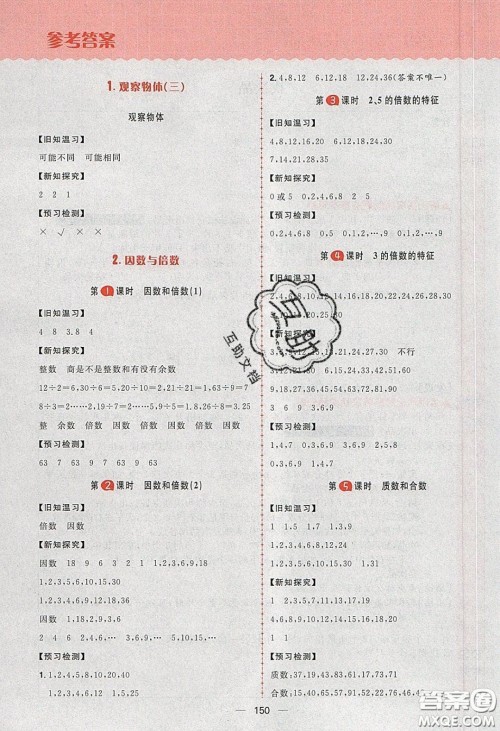 参考答案
1. 观察物体(三)
观察物体
【旧知温习】
可能不同 可能相同
【新知探究】
2 2 1
【预习检测】
× √ × ×
2. 因数与倍数
第1课时 因数和倍数(1)
【旧知温习】
4 8 3.8 4
【新知探究】
整数 商是不是整数和有没有余数
12÷2=6,30÷6=5,20÷10=2,63÷9=7
8÷3=2……2,9÷5=1.8,26÷8=3.25,19÷7=
整 余 倍数 因数 倍数 因数 倍数
【预习检测】
63 7 9 63 7 9 63
第2课时 因数和倍数(2)
【旧知温习】
倍数 因数
【新知探究】
因数 18 9 6 3 2 1 1,2,3,6,9,18
1,2,3,5,6,10,15,30
1,2,3,4,6,9,12,18,36
2 4 6 2,4,6,8,… 倍数 因数
【预习检测】
1. 1,2,4,5,8,10,20,40
1,2,3,4,6,9,12 1,5,25
2. 4,8,12 6,12,18 12,24,36(答案不唯一)
第3课时 2、5的倍数的特征
【旧知温习】 4,8,12,16,20 6,12,18,24,30
7,14,21,28,35
【新知探究】
0或5 0,2,4,6,8 2 5
【预习检测】
0,2,4,6,8 0,5 0 0,1,2,…,9 0,1,2,…,9
第4课时 3的倍数的特征
【旧知温习】
【新知探究】
不行
9,18,27,36,45,54,63,72,81,90
1 3 6 9 3,6,9
【预习检测】
1,4,7 0,3,6,9 0,1,2,…,9 1,4,7
0,3,6,9
第5课时 质数和合数
【旧知温习】
1 1,5 1,7 1,3,9
【新知探究】
【预习检测】
互助
互助文档
150
答案圈
MXQE.COM